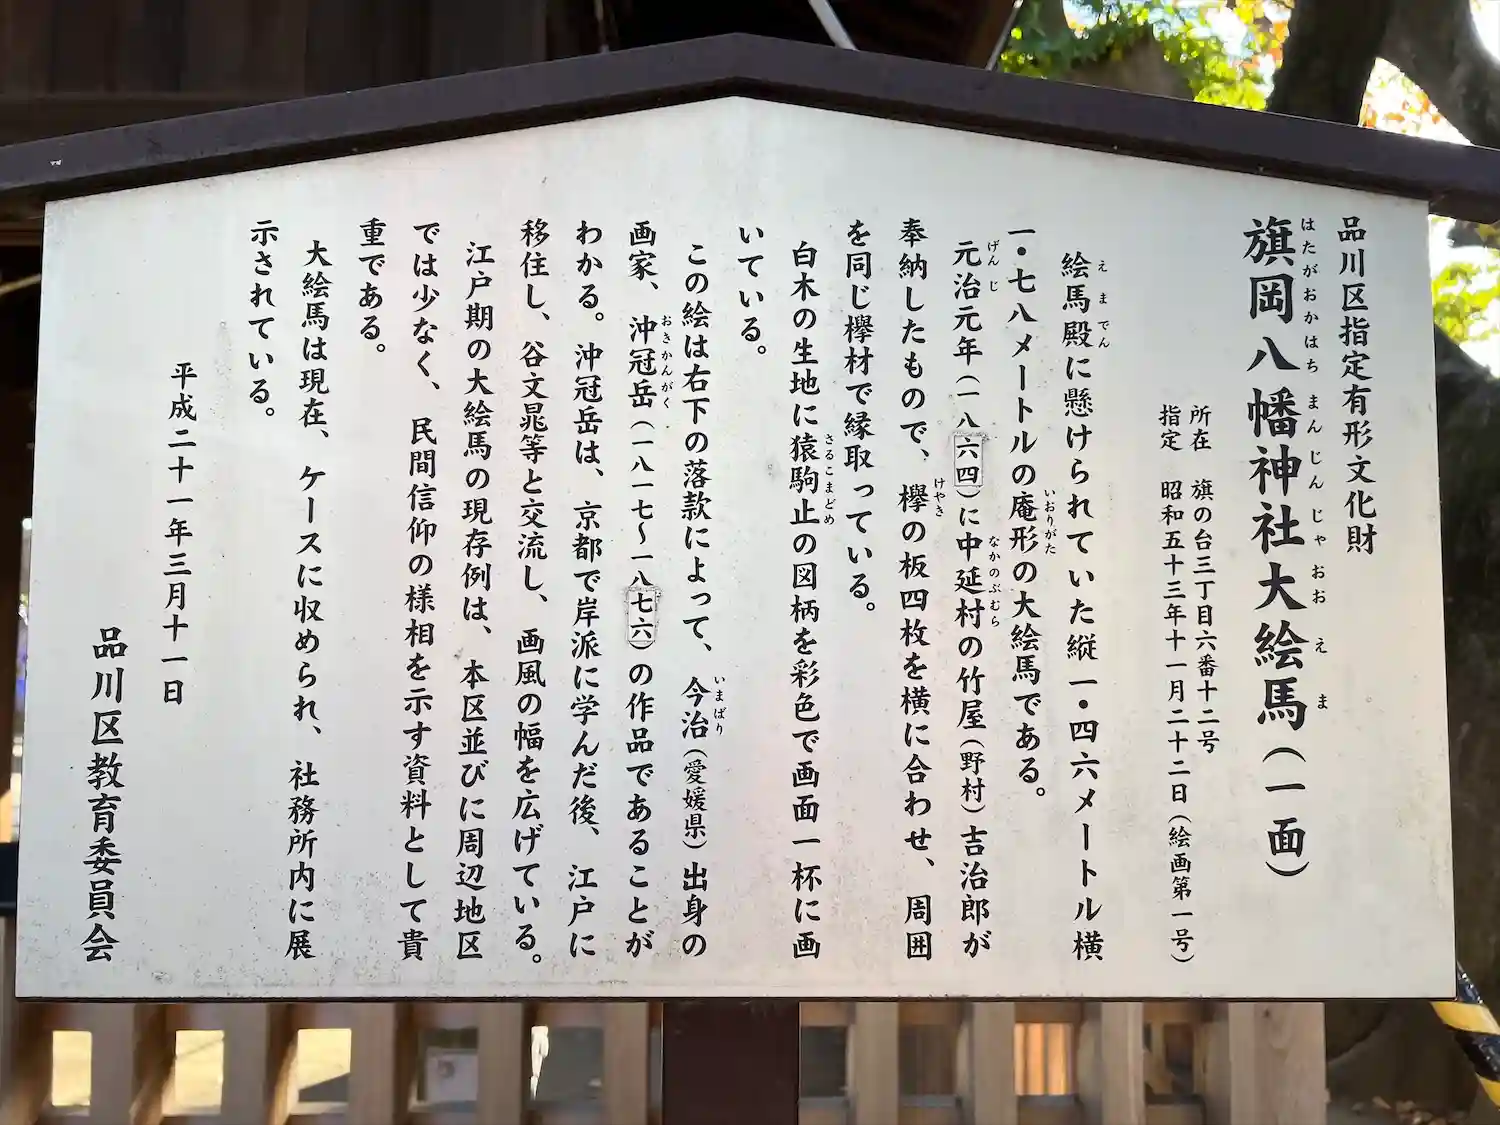 品川区指定有形文化財
旗岡八幡神社大絵馬（一面）
はたがおかはちまんじんじゃおおえま
所在　旗の台三丁目六番十二号
指定　昭和五十三年十一月二十二日（絵画第一号）
絵馬殿に懸けられていた縦一・四六メートル横
えまでん
一・七八メートルの庵形の大絵馬である。
いおりがた
元治元年（一八六四）に中延村の竹屋（野村）吉治郎が
げんじ
なかのぶむら
奉納したもので、欅の板四枚を横に合わせ、周囲
けやき
を同じ欅材で縁取っている。
白木の生地に猿駒止の図柄を彩色で画面一杯に画
さるこまどめ
いている。
この絵は右下の落款によって、今治（愛媛県）出身の
いまばり
画家、沖冠岳（一八一七～一八七六）の作品であることが
おきかんがく
わかる。沖冠岳は、京都で岸派に学んだ後、江戸に
移住し、谷文晁等と交流し、画風の幅を広げている。
江戸期の大絵馬の現存例は、本区並びに周辺地区
では少なく、民間信仰の様相を示す資料として貴
重である。
大絵馬は現在、ケースに収められ、社務所内に展
示されている。
平成二十一年三月十一日
品川区教育委員会